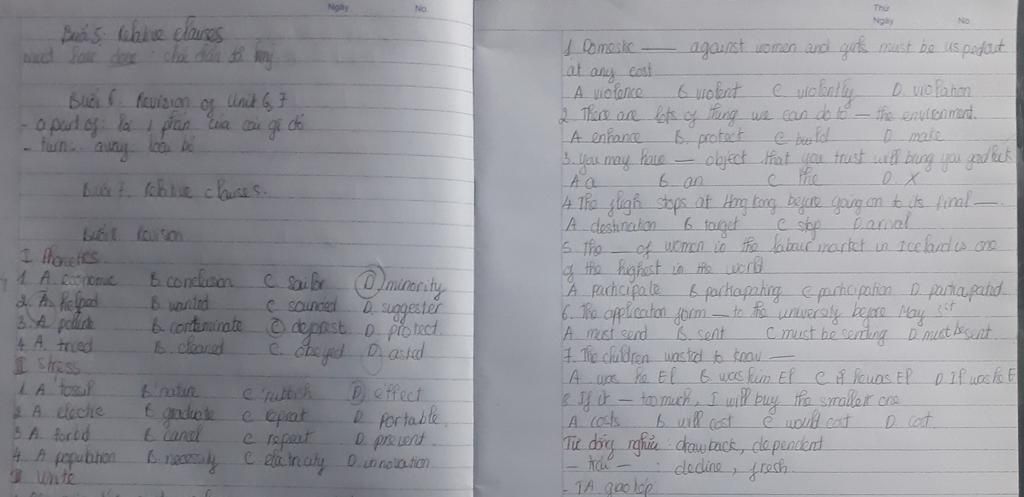 Ngày No.
Buổi 5: Relative clauses
must have done : chắc
Buổi 6. Revision of Unit 6, 7
- a part of: là 1 phần của cái gì đó
- turn away
Buổi 7. Relative clauses.
Buổi 8. Revison
I Phonetics
1. A. economic B. conclusion C. sailor D. minority
2. A. helped B. wanted C. sounded D. suggester
3. A pollute B. contaminate C deprost D. protect.
4. A. tried B. cleared C. obeyed D. asked
II Stress
1. A fossil B nature C rubbish D effect
2. A. cliche B. graduate C. repeat D. portable.
3. A. forbid B. cancel C. repeat D. prevent.
4. A population B. necessity C. electricity D. innovation
III Write
Thứ
Ngày No.
1. Domestic —— against women and girls must be
at any cost
A violence B. violent C. violently D. violation
2. There are lots of thing we can do to — the environment.
A enhance B. protect C build D make
3. you may have — object that you trust will bring you good luck
A a B. an C the D. X
4. The fligh stops at Hong Kong before going on to its final —.
A. destination B target C. stop D. arrival
5. The — of women in the labour market in Iceland is one
of the highest in the world
A participate B participating C participation D. participated.
6. The application form — to the university before May 1st
A. must send B. sent C must be sending D. must be sent.
7. The children wanted to know —
A was he EP B was him EP C if he was EP D. If was he E
8. If it — too much, I will buy the smaller one
A costs B. will cost C would cost D. cost.
Từ đồng nghĩa : drawback, dependent
— trái — : decline, fresh
- TA giao tiếp